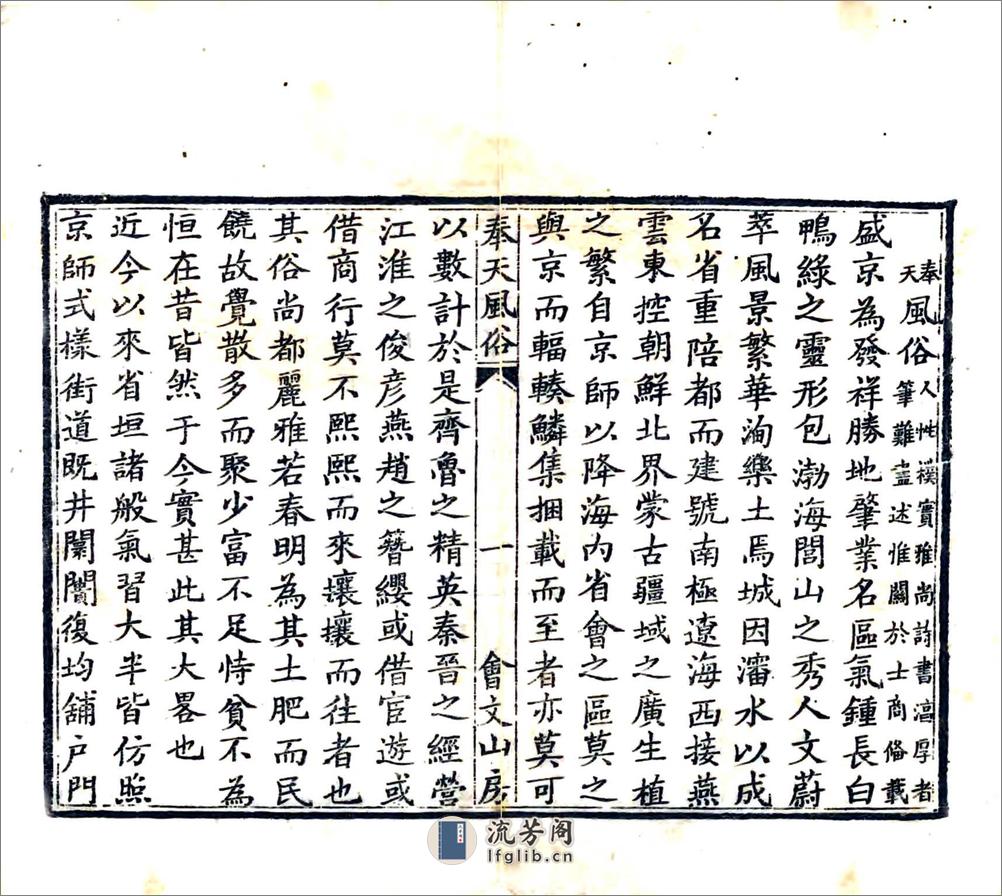 奉天風俗人性樸實雅尚詩書淳厚者筆難盡述惟關於士商偹載
盛京為發祥勝地肇業名區氣鍾長白
鴨綠之靈形包渤海閭山之秀人文蔚
萃風景繁華洵樂土焉城因瀋水以成
名省重陪都而建號南極遼海西接燕
雲東控朝鮮北界蒙古疆域之廣生植
之繁自京師以降海內省會之區莫之
與京而輻輳鱗集捆載而至者亦莫可
奉天風俗 一 會文山房
以數計於是齊魯之精英秦晉之經營
江淮之俊彦燕趙之簪纓或借宦遊或
借商行莫不熙熙而來攘攘而往者也
其俗尚都麗雅若春明為其土肥而民
饒故覺散多而聚少富不足恃貧不為
恒在昔皆然于今實甚此其大畧也
近今以來省垣諸般氣習大半皆仿照
京師式樣街道既井闤闠復均舖戶門
流芳阁
lfglib.cn